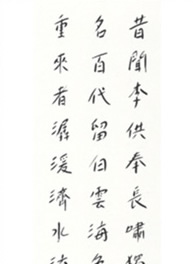 昔聞李供奉長嘯
名百代留白雲海
重來者潺湲濟水